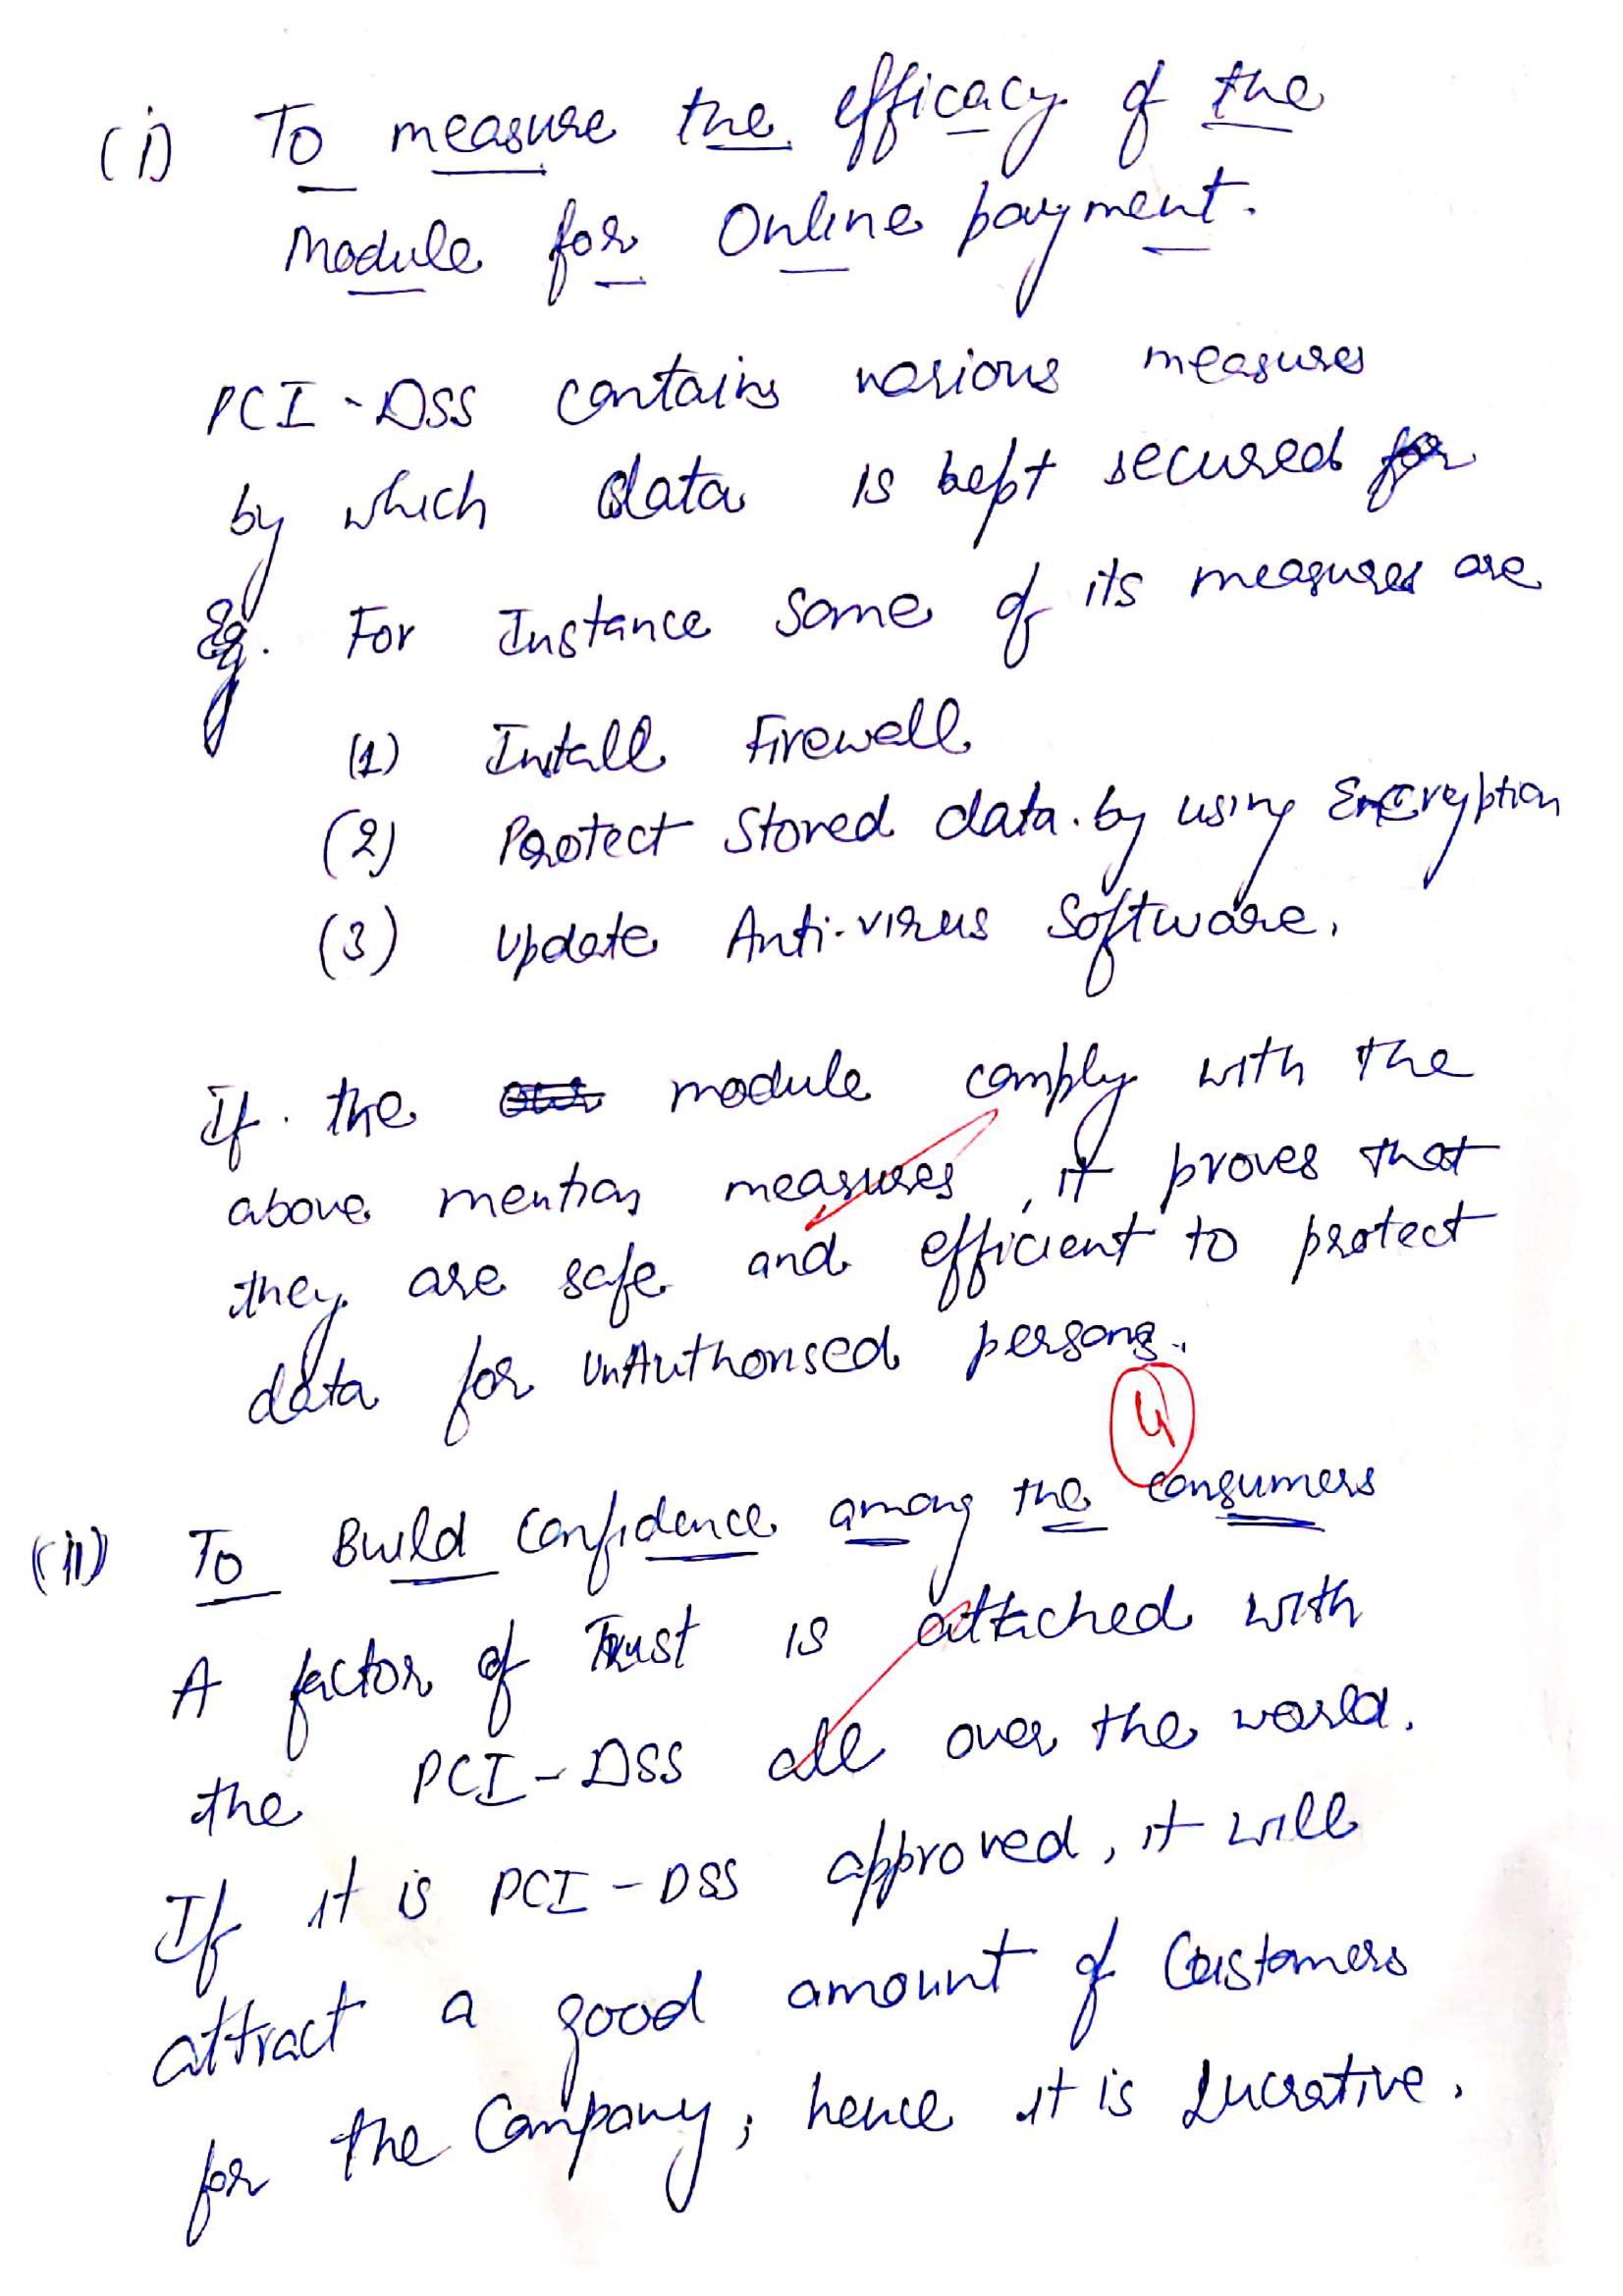 (i) To measure the efficacy of the
Module for Online payment.
PCI-DSS contains various measures
by which data is kept secured for
Eg. For Instance Some of its measures are
(1) Install Firewall
(2) Protect Stored data. by using Encryption
(3) Update Anti-virus Software.
If the module comply with the
above mention measures, it proves that
they are safe and efficient to protect
data for unAuthorised persons.
4
(ii) To Build Confidence among the consumers
A factor of Trust is attached with
the PCI-DSS all over the world.
If it is PCI-DSS approved, it will
attract a good amount of Customers
for the Company; hence it is Lucrative.